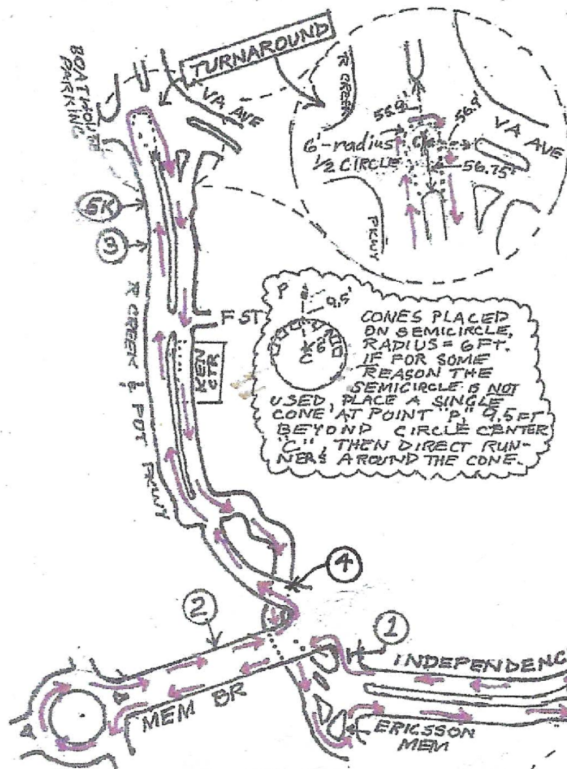 TURNAROUND
BOATHOUSE
PARKING
VA AVE
R CREEK
PKWY
55.9'
56.9'
VA AVE
6'-radius
1/2 CIRCLE
C
56.75'
5K
3
R CREEK & POT PKWY
F ST
KEN
CTR
P
9.5'
6'
C
CONES PLACED
ON SEMICIRCLE,
RADIUS = 6 FT.
IF FOR SOME
REASON THE
SEMICIRCLE IS NOT
USED, PLACE A SINGLE
CONE AT POINT "P," 9.5 FT
BEYOND CIRCLE CENTER
"C", THEN DIRECT RUN-
NERS AROUND THE CONE.
4
2
1
INDEPENDENC
MEM BR
ERICSSON
MEM